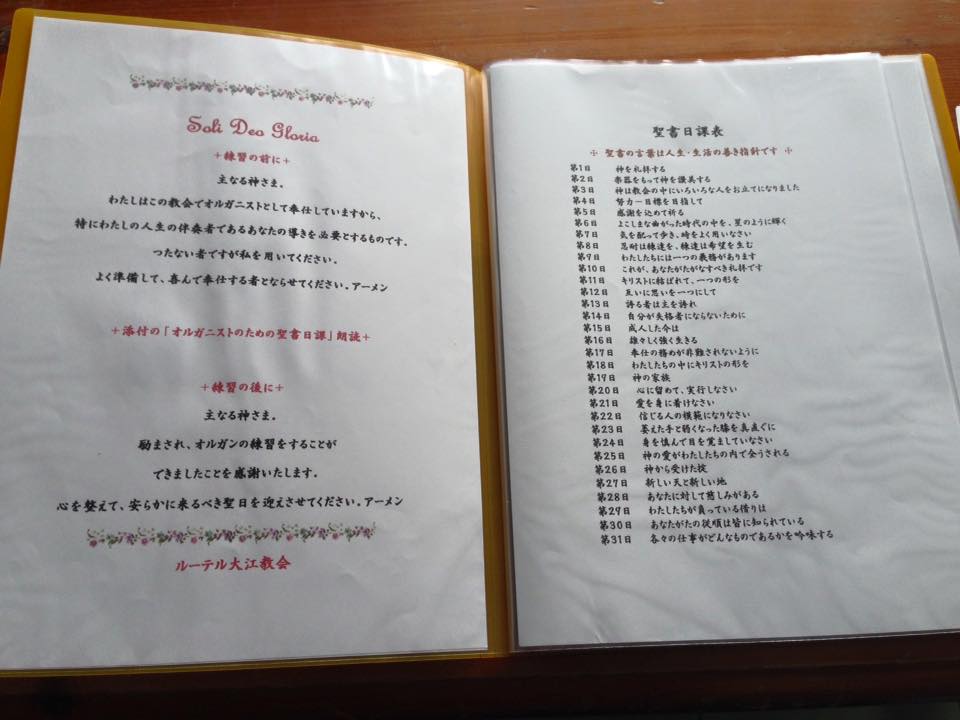 Soli Deo Gloria
+練習の前に+
主なる神さま。
わたしはこの教会でオルガニストとして奉仕していますから、
特にわたしの人生の伴奏者であるあなたの導きを必要とするものです。
つたない者ですが私を用いてください。
よく準備して、喜んで奉仕する者とならせてください。アーメン
+添付の「オルガニストのための聖書日課」朗読+
+練習の後に+
主なる神さま。
励まされ、オルガンの練習をすることが
できましたことを感謝いたします。
心を整えて、安らかに来るべき聖日を迎えさせてください。アーメン
ルーテル大江教会
聖書日課表
聖書の言葉は人生・生活の善き指針です
第1日 神を礼拝する
第2日 楽器をもって神を讃美する
第3日 神は教会の中にいろいろな人をお立てになりました
第4日 努力－目標を目指して
第5日 感謝を込めて祈る
第6日 よこしまな曲がった時代の中を、星のように輝く
第7日 気を配って歩き、時をよく用いなさい
第8日 忍耐は練達を、練達は希望を生む
第9日 わたしたちには一つの義務があります
第10日 これが、あなたがたがなすべき礼拝です
第11日 キリストに結ばれて、一つの形を
第12日 互いに思いを一つにして
第13日 誇る者は主を誇れ
第14日 自分が失格者にならないために
第15日 成人した今は
第16日 雄々しく強く生きる
第17日 奉仕の務めが非難されないように
第18日 わたしたちの中にキリストの形を
第19日 神の家族
第20日 心に留めて、実行しなさい
第21日 愛を身に着けなさい
第22日 信じる人の模範になりなさい
第23日 萎えた手と弱くなった膝を真直ぐに
第24日 身を慎んで目を覚ましていなさい
第25日 神の愛がわたしたちの内で全うされる
第26日 神から受けた掟
第27日 新しい天と新しい地
第28日 あなたに対して慈しみがある
第29日 わたしたちが負っている借りは
第30日 あなたがたの従順は皆に知られている
第31日 各々の仕事がどんなものであるかを吟味する